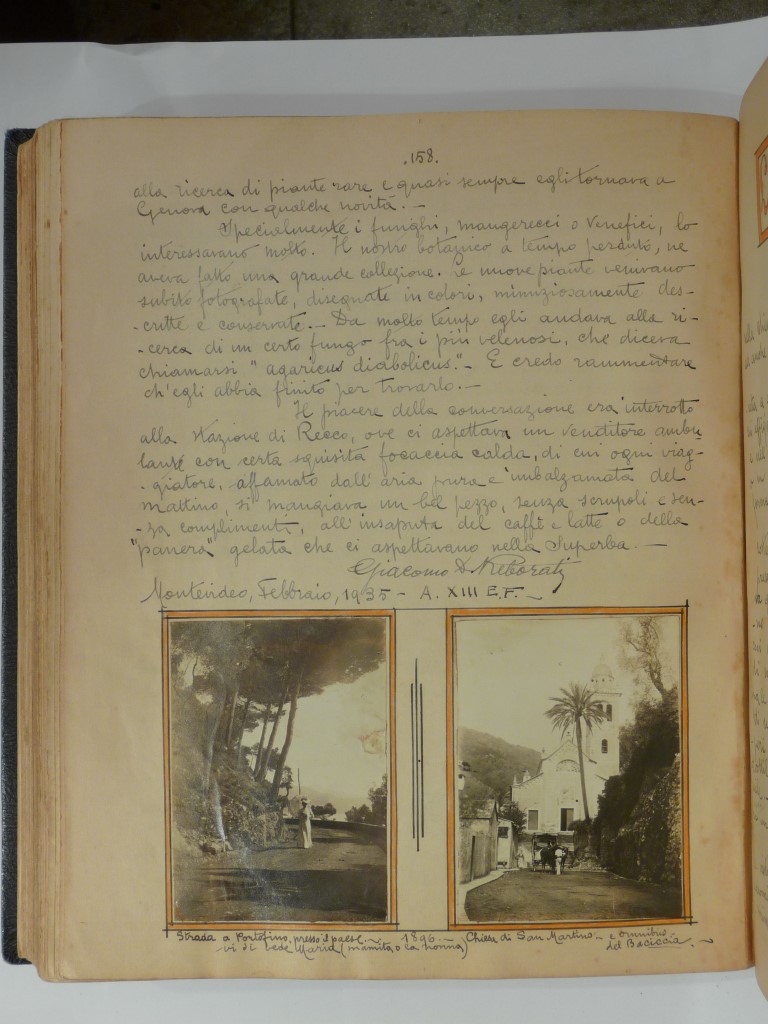 .158.
alla ricerca di piante rare e quasi sempre egli tornava a
Genova con qualche novità. —
Specialmente i funghi, mangerecci o venefici, lo
interessavano molto. Il nostro botanico a tempo perduto, ne
aveva fatto una grande collezione. Le nuove piante venivano
subito fotografate, disegnate in colori, minuziosamente des-
-critte e conservate. — Da molto tempo egli andava alla ri-
-cerca di un certo fungo fra i più velenosi, che diceva
chiamarsi "agaricus diabolicus". — E credo rammentare
ch'egli abbia finito per trovarlo. —
Il piacere della conversazione era interrotto
alla stazione di Recco, ove ci aspettava un venditore ambu-
lante con certa squisita focaccia calda, di cui ogni viag-
-giatore, affamato dall'aria pura e imbalzamata del
mattino, si mangiava un bel pezzo, senza scrupoli e sen-
-za complimenti, all'insaputa del caffè e latte o della
"panera" gelata che ci aspettavano nella Superba. —
Giacomo D.
Montevideo, Febbraio, 1935 - A. XIII E.F. —
Strada a Portofino, presso il paese — 1896 — Chiesa di San Martino — e omnibus
vi si vede Maria (mamita o la nonna) del Baciccia. —